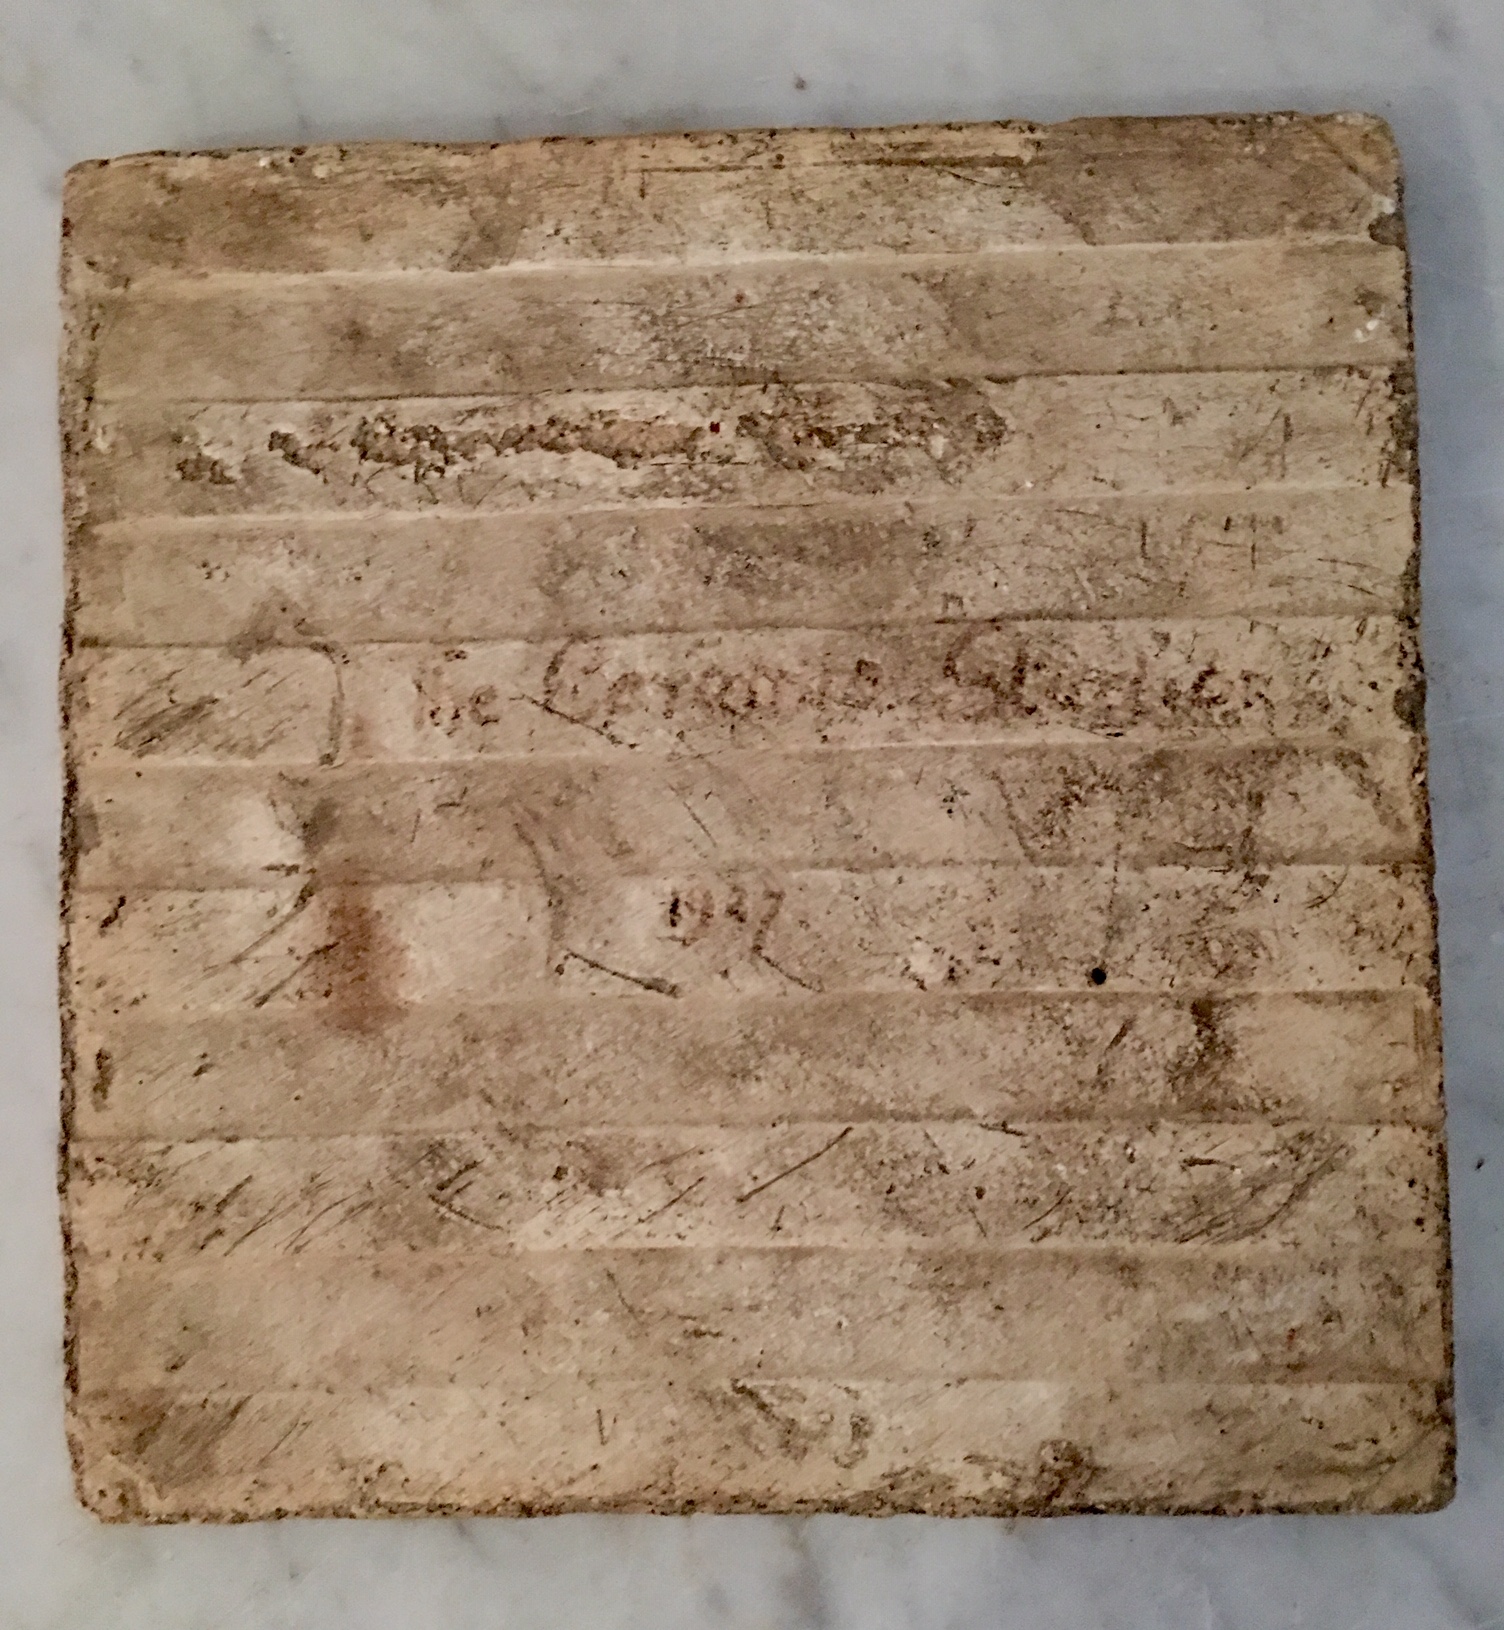 The Ceramic Studios
1927